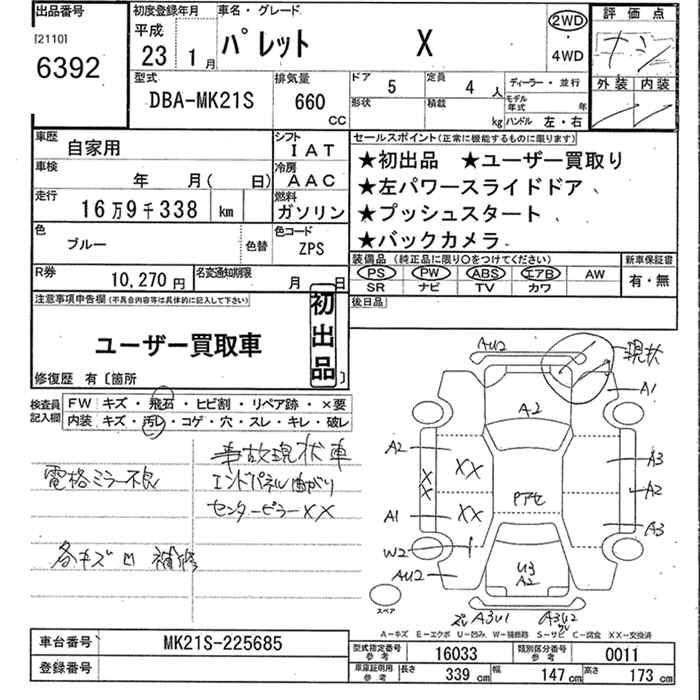 出品番号
[2110]
6392
初度登録年月
平成
23 1月
車名・グレード
パレット X
2WD
・
4WD
評価点
外装 内装
型式
DBA-MK21S
排気量
660
CC
ドア
5
定員
4人
形状
積載
kg
ディーラー・並行
モデル年式 年
ハンドル 左・右
車歴
自家用
シフト
IAT
車検
年 月( 日)
冷房
AAC
走行
16万9千338 km
燃料
ガソリン
色
ブルー
色替
色コード
ZPS
R券
10,270円
名変通知期限
月 日
セールスポイント(正常に機能するものに限ります)
★初出品 ★ユーザー買取り
★左パワースライドドア
★プッシュスタート
★バックカメラ
装備品(純正品に限り○をつけてください)
新車保証書
PS PW ABS エアB AW
SR ナビ TV カワ
有・無
後日品
注意事項申告欄(不具合内容等は具体的に記入して下さい)
初出品
ユーザー買取車
修復歴 有〔箇所 〕
検査員記入欄
FW キズ・飛石・ヒビ割・リペア跡・×要
内装 キズ・汚レ・コゲ・穴・スレ・キレ・破レ
事故現状車
電格ミラー不良
エンドパネル曲がり
センターピラーXX
各キズ凹 補修
AU2
現状
A1
A2
A2
XX
A3
X
X
A2
A1
XX
アセ
A3
W2
AU2
U3
A2
スペア
A3U1
A3U2
A-キズ E-エクボ U-凹み W-補修跡 S-サビ C-腐食 XX-交換済
車台番号
MK21S-225685
登録番号
型式指定番号
参考
16033
類別区分番号
参考
0011
車庫証明用
参考
長さ 339cm
幅 147cm
高さ 173cm